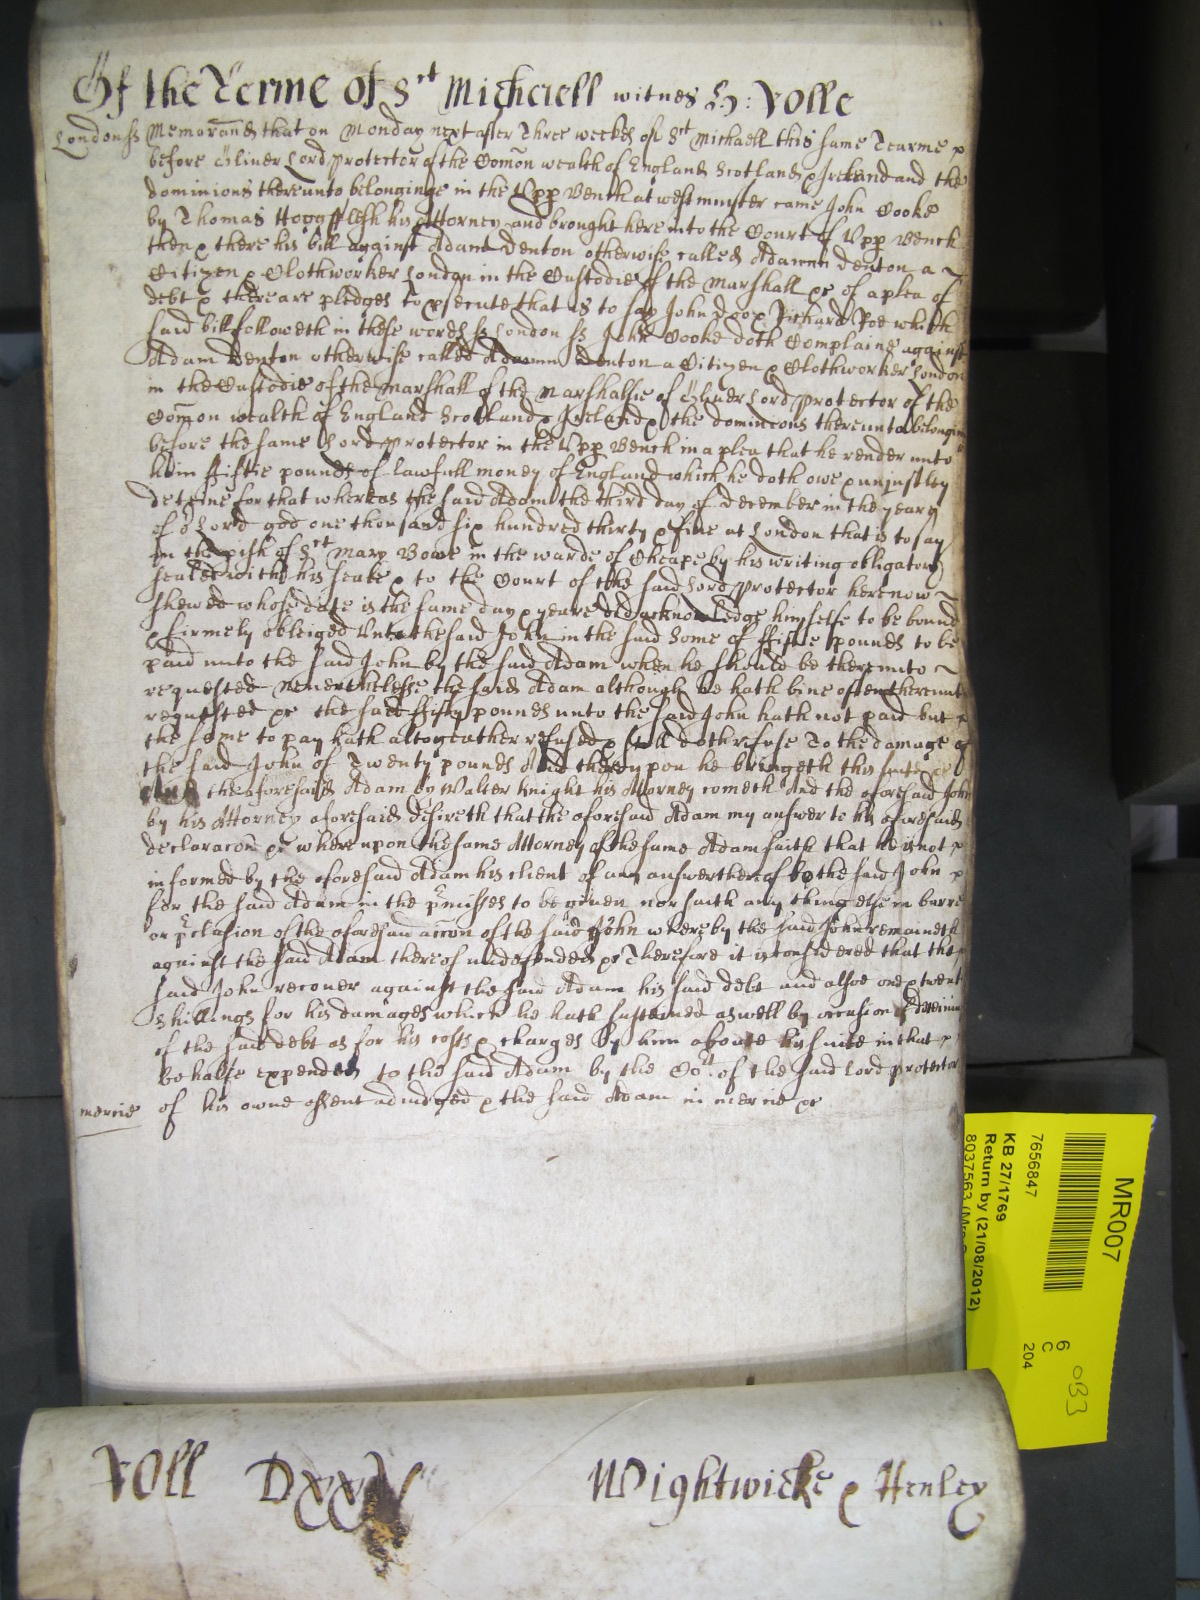 Of the Terme of St Michaell witnes H: Rolle
London ss Memorand that on Monday next after Three weekes of St Michaell this same Tearme &
before Oliver Lord Protector of the Comon wealth of England Scotland & Ireland and the
dominions thereunto belonginge in the Upp Bench at westminster came John Cooke
by Thomas Hoggflesh his Attorney and brought here into the Court of Upp Bench
then & there his bill against Adam Denton otherwise called Adamm Denton a
Citizen & Clothworker London in the Custodie of the Marshall &c of a plea of
debt & there are pledges to psecute that is to say John Doo & Richard Roe which
said bill followeth in these words ss London ss John Cooke doth Complaine against
Adam Denton otherwise called Adamm Denton a Citizen & Clothworker London
in the Custodie of the Marshall of the Marshallsie of Oliver Lord Protector of the
Comon wealth of England Scotland & Ireland & the dominions thereunto belonging
before the same Lord Protector in the Upp Bench in a plea that he render unto
him fiftie pounds of lawfull money of England which he doth owe & unjustly
deteine for that whereas the said Adam the third day of December in the yeare
of or Lord god one thousand six hundred thirty & five at London that is to say
in the pish of St Mary Bowe in the warde of Cheape by his writing obligatory
sealed with his seale & to the Court of the said Lord Protector here now
shewed whose date is the same day & yeare did acknowledge himselfe to be bound
& firmely obleiged Unto the said John in the said Some of ffiftie pounds to be
paid unto the said John by the said Adam when he should be thereunto
requested Neverthelesse the said Adam although he hath bine often thereunto
requested &c the said ffifty pounds unto the said John hath not paid but
the same to pay hath altogeather refused & still doth refuse To the damage of
the said John of Twenty pounds And thereupon he bringeth this suite &c
And the aforesaid Adam by Walter Knight his Attorney cometh And the aforesaid John
by his Attorney aforesaid desireth that the aforesaid Adam my answer to his aforesaid
declaracon &c whereupon the same Attorney of the same Adam saith that he is not
informed by the aforesaid Adam his client of any answer thereof to the said John
for the said Adam in the pmisses to be given nor saith any thing else in barre
or pclusion of the aforesaid accon of the said John whereby the said John remaineth
against the said Adam thereof undefended &c Therefore it is considered that the
said John recover against the said Adam his said debt and alsoe one & twenty
shillings for his damages which he hath susteined aswell by occasion of deteining
of the said debt as for his costs & charges by him aboute his suite in that
behalfe expended to the said Adam by the Cort of the said Lord Protector
mercie of his owne assent adiudged & the said Adam in mercie &c
Roll DxxV Wightwicke & Henley
MR007
7656847
KB 27/1769
Return by (21/08/2012)
6
C
204
OB3